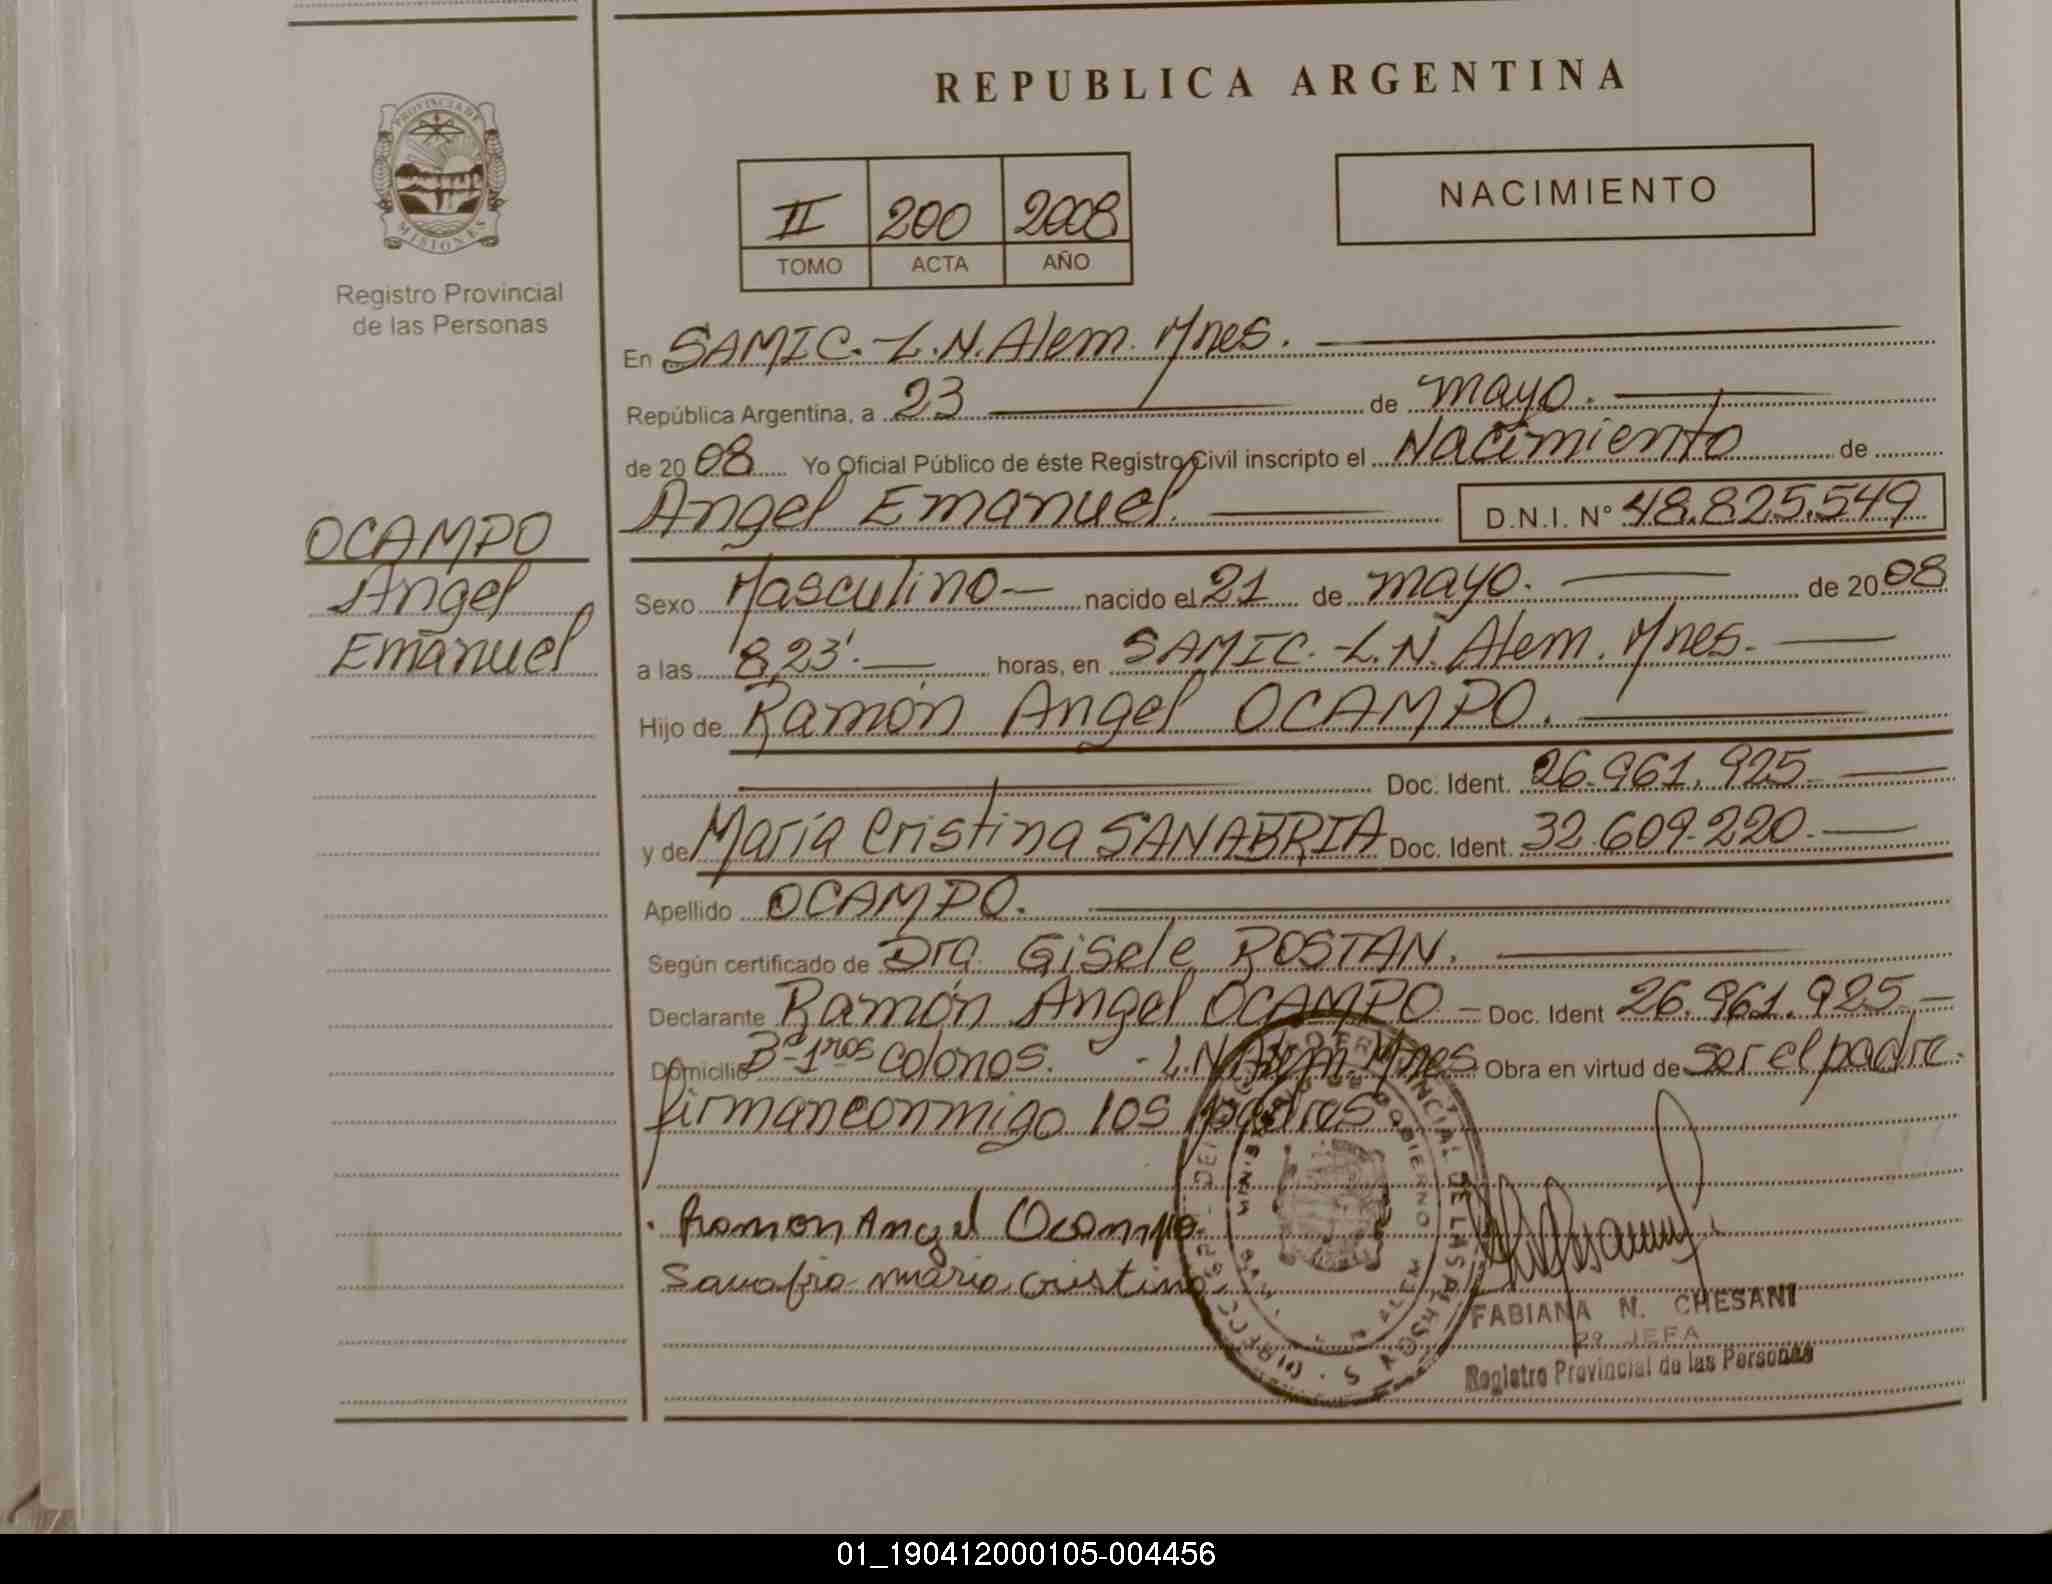 REPUBLICA ARGENTINA
PROVINCIA DE
MISIONES
Registro Provincial
de las Personas
II 200 2008
TOMO ACTA AÑO
NACIMIENTO
En SAMIC.-L.N.Alem. Mnes.
República Argentina, a 23 de mayo.
de 2008 Yo Oficial Público de éste Registro Civil inscripto el Nacimiento de
Angel Emanuel. D.N.I. N° 48.825.549
OCAMPO
Angel
Emanuel
Sexo Masculino nacido el 21 de mayo. de 2008
a las 8,23'. horas, en SAMIC.-L.N. Alem. Mnes.
Hijo de Ramón Angel OCAMPO.
Doc. Ident. 26.961.925
y de María Cristina SANABRIA Doc. Ident. 32.609.220.
Apellido OCAMPO.
Según certificado de Dra. Gisele ROSTAN.
Declarante Ramón Angel OCAMPO - Doc. Ident 26.961.925
Domicilio Bº-1ros colonos. - L.N.Alem.Mnes Obra en virtud de ser el padre.
firman conmigo los padres
Ramon Angel Ocampo
maria cristina
FABIANA N. CHESANI
2º JEFA
Registro Provincial de las Personas
01_190412000105-004456